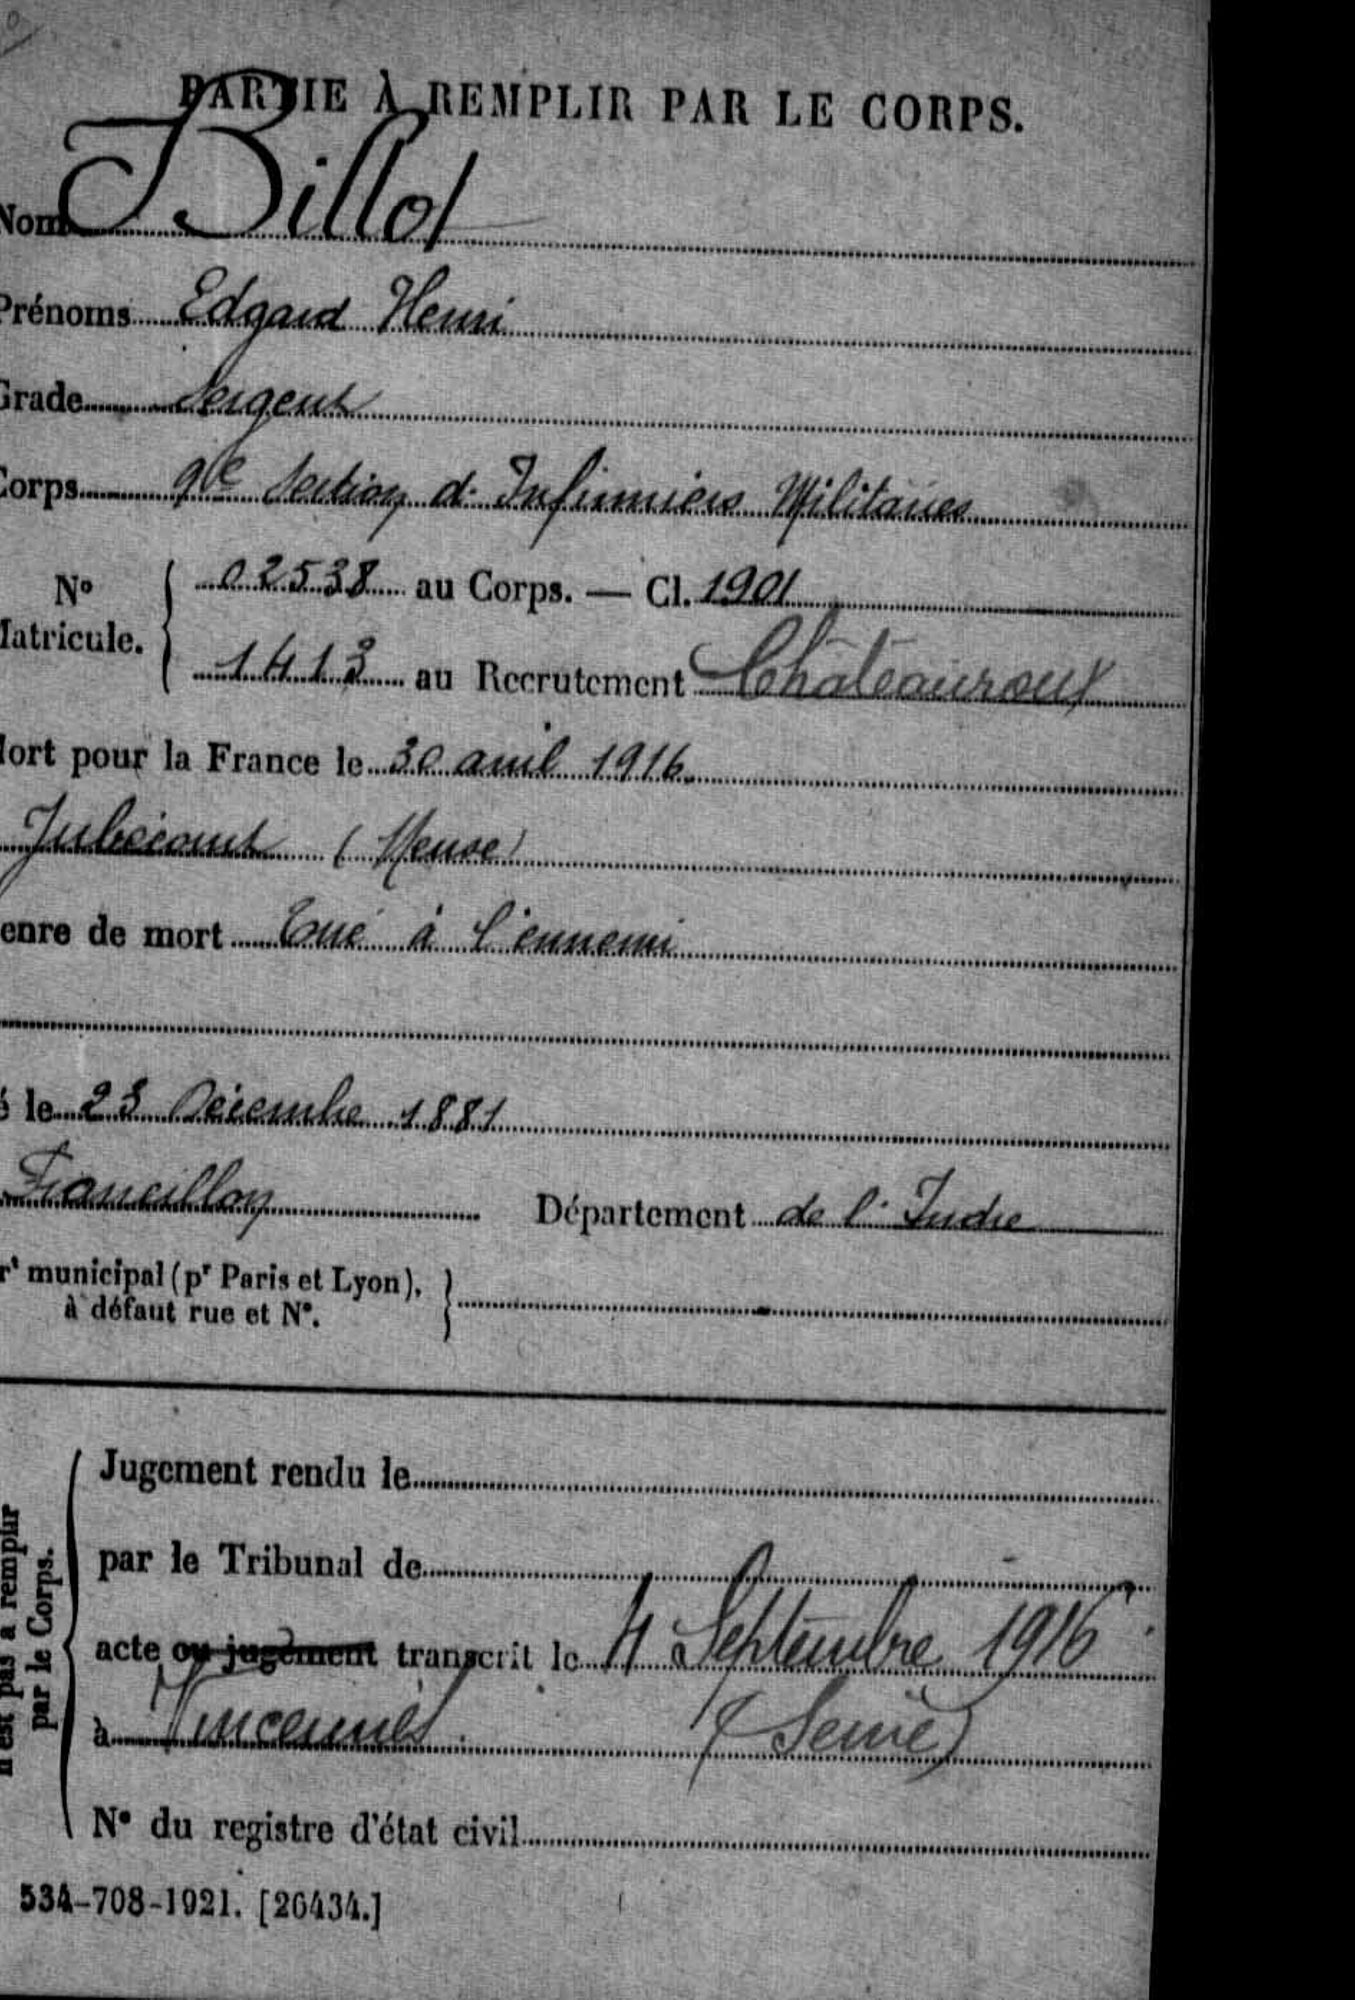 PARTIE À REMPLIR PAR LE CORPS.
Nom Billot
Prénoms Edgard Henri
Grade Sergent
Corps 9e Section d'Infirmiers Militaires
No Matricule. { 02538 au Corps. — Cl. 1901
1413 au Recrutement Châteauroux
Mort pour la France le 30 avril 1916
Jubécourt (Meuse)
enre de mort Tué à l'ennemi
é le 23 Décembre 1881
Francillon Département de l'Indre
rt municipal (pr Paris et Lyon),
à défaut rue et N°.
Jugement rendu le
par le Tribunal de
acte ou jugement transcrit le 4 Septembre 1916
à Vincennes (Seine)
N° du registre d'état civil
n'est pas à remplir
par le Corps.
534-708-1921. [26434.]